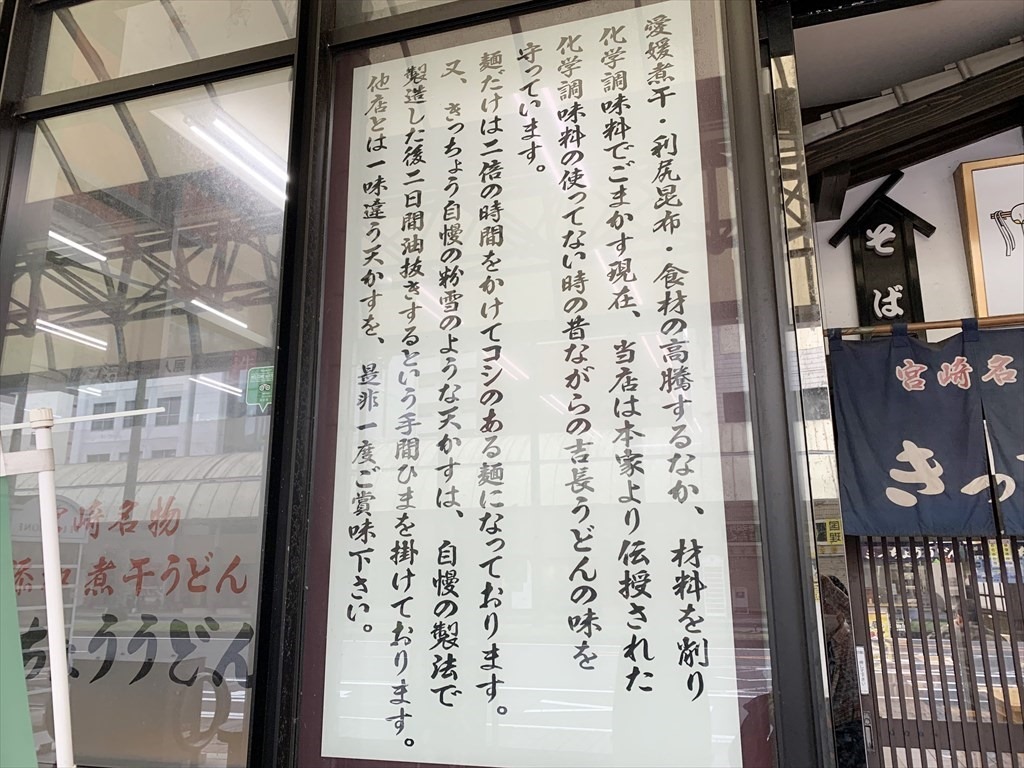 愛媛煮干・利尻昆布・食材の高騰するなか、材料を削り
化学調味料でごまかす現在、当店は本家より伝授された
化学調味料の使ってない時の昔ながらの吉長うどんの味を
守っています。
麺だけは二倍の時間をかけてコシのある麺になっております。
又、きっちょう自慢の粉雪のような天かすは、自慢の製法で
製造した後二日間油抜きするという手間ひまを掛けております。
他店とは一味違う天かすを、是非一度ご賞味下さい。
そば
宮崎名
きっ
宮崎名物
煮干うどん
ちょううどん